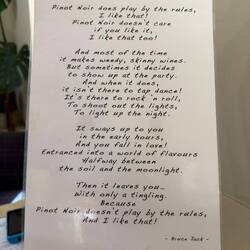 Pinot Noir does play by the rules,
I like that!
Pinot Noir doesn't care
if you like it,
I like that too!
And most of the time
it makes weedy, skinny wines.
But sometimes it decides
to show up at the party.
And when it does,
it isn't there to tap dance!
It's there to rock 'n roll,
To shoot out the lights,
To light up the night.
It sways up to you
in the early hours,
And you fall in love!
Entranced into a world of flavours
Halfway between
the soil and the moonlight.
Then it leaves you…
With only a tingling.
Because
Pinot Noir doesn't play by the rules,
And I like that!
- Bruce Jack -